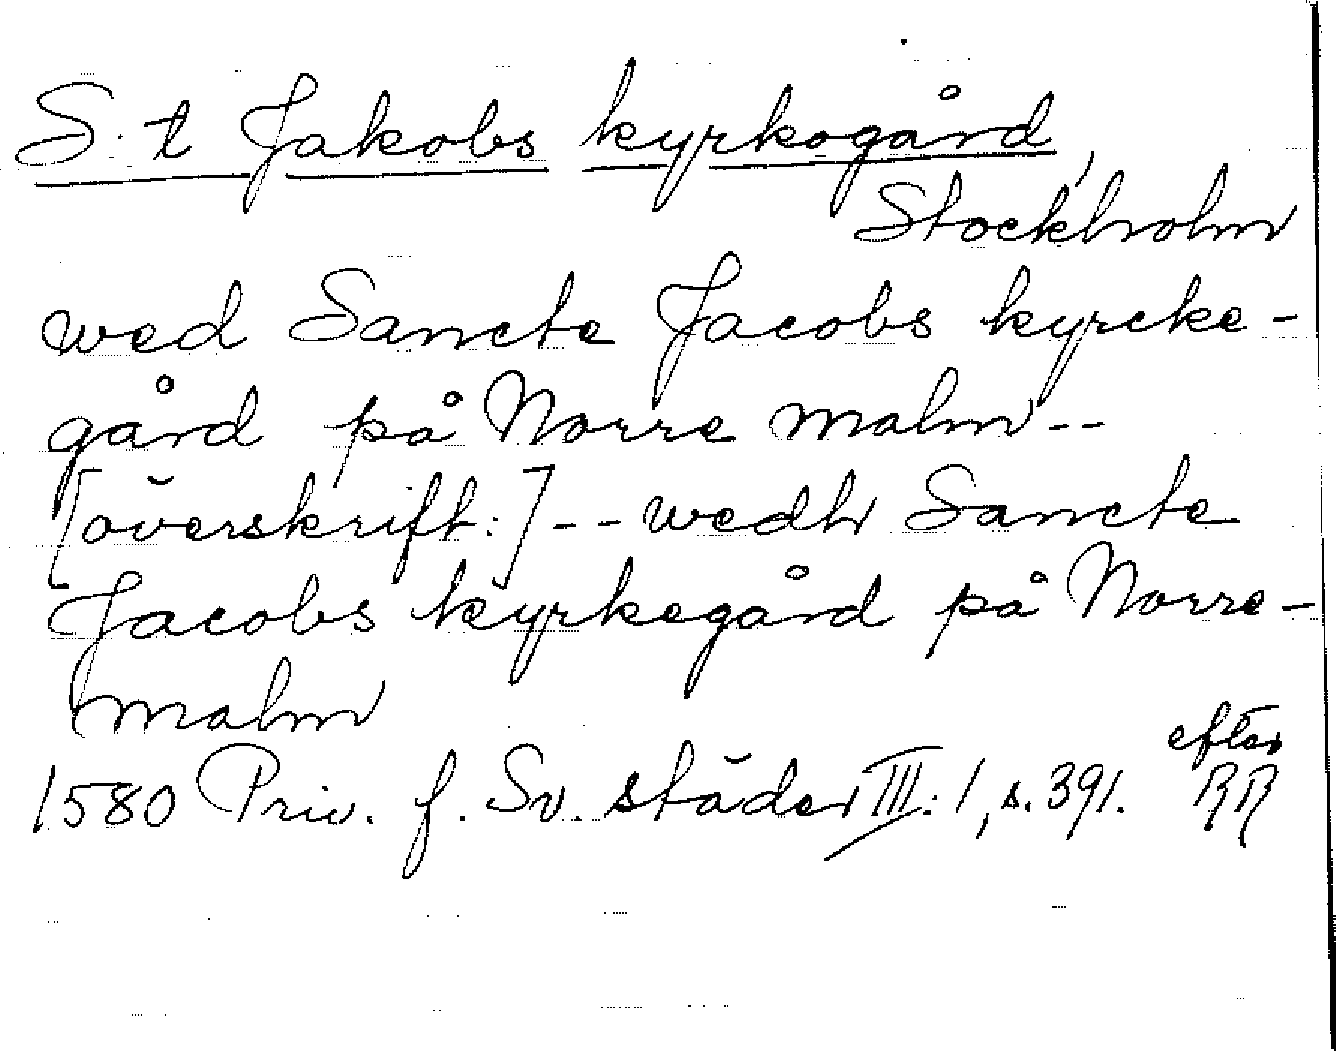 S:t Jakobs kyrkogård,
Stockholm
wed Sancte Jacobs kyrcke-
gård på Norre malm--
[överskrift:]--wedh Sancte
Jacobs kyrkegård på Norre-
malm
1580 Priv. f. Sv. städer III:1, s. 391. efter RR